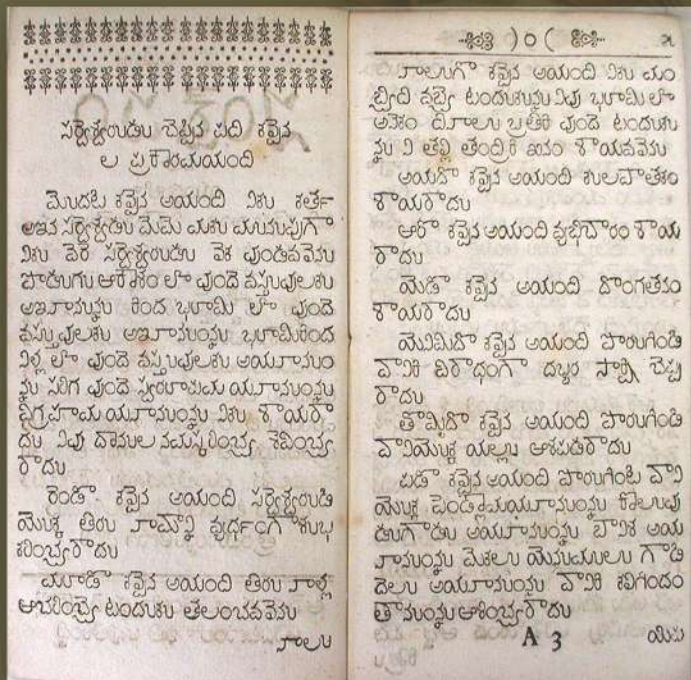 సర్వేశ్వరుడు చెప్పిన పది కవ్పైన
ల ప్రకారమయంది
మొదట కవ్పైన అయంది నికు కర్త
అఇన సర్వేశ్వరుడు మెమె మకు మునుపుగా
నికు వెరె సర్వేశ్వరుడు వెక వుండవవెను
పొడుగు ఆకాశం లొ వుండె వస్తువులకు
అఇనానున్ను కింద భూమి లొ వుండె
వస్తువులకు అఇనానుంన్ను భూమికింద
నిళ్ల లొ వుండె వస్తువులకు అయినానుం
న్ను సలిగ వుండె స్వరూపము యైనానుంన్ను
విగ్రహము యైనానుంన్ను నికు శాయరా
దు నివు దానుల నమస్కరించ్ను శెవించ్ను
రాదు
రెండొ కవ్పైన అయంది సర్వేశ్వరుడి
యొక్క తిరు నామాన్ని వ్యర్ధంగా శుభ
కరించ్నురాదు
మూడొ కవ్పైన అయంది తిరు నాళ్ల
ఆచరించ్నె టందుకు తలంచవవెను
నాలు
౫
నాలుగొ కవ్పైన అయంది నికు మం
చ్చిది వచ్చె టందుకున్ను నివు భూమి లొ
అనెకం దినాలు బ్రతికి వుండె టందుకు
న్ను ని తల్లి తండ్రికి ఖనం శాయవవెను
అయిదొ కవ్పైన అయంది కులపాతకం
శాయరాదు
ఆరొ కవ్పైన అయంది వ్యభిచారం శాయ
రాదు
యెడొ కవ్పైన అయంది దొంగతనం
శాయరాదు
యెనిమిదొ కవ్పైన అయంది పొరుగింటి
వానికి విరొధంగా దబ్బర సాక్షి చెప్ప
రాదు
తొమ్మిదొ కవ్పైన అయంది పొరుగింటి
వానియొక్క యిల్లు ఆశపడరాదు
పదొ కవ్పైన అయంది పొరుగింటి వాని
యొక్క పెండ్లామయినానుంన్ను కొలువు
డుగాడు అయినానుంన్ను బానిశ అయి
నానుంన్ను మెకలు యెనుములు గాడి
దెలు అయినానుంన్ను వానికి కలిగిందం
తానుంన్ను ఆశించ్నురాదు
A 3 యివి